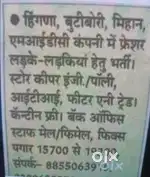 ● हिंगणा, बुटीबोरी, मिहान,
एमआईडीसी कंपनी में फ्रेशर
लड़के-लड़कियां हेतु भर्ती।
स्टोर कीपर इंजी./पॉली,
आईटीआई, फीटर एनी ट्रेड।
कॅन्टीन फ्री। बैंक ऑफिस
स्टाफ मेल/फिमेल, फिक्स
पगार 15700 से
संपर्क- 88550639
olx